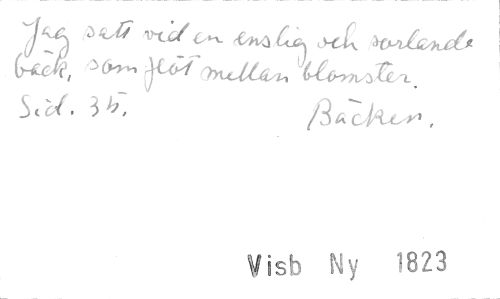 Jag satt vid en enslig och sorlande
bäck, som flöt mellan blomster.
Sid. 35. Bäcken.
Visb Ny 1823